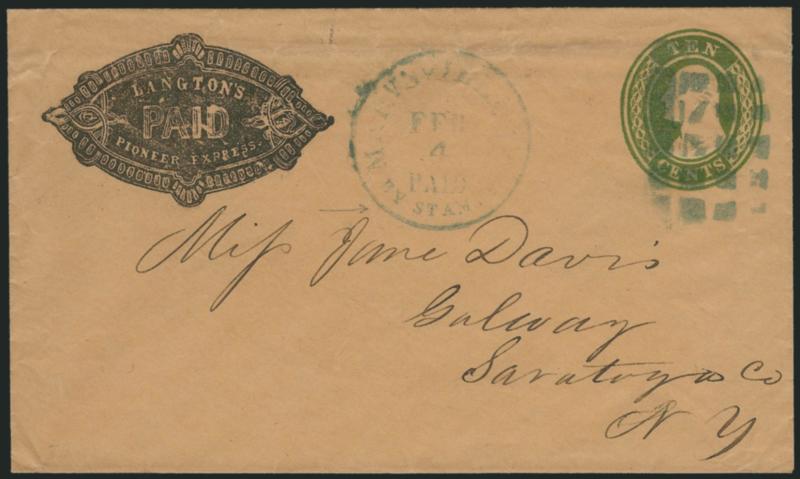 LANGTON'S
PAID
PIONEER EXPRESS.
MARYSVILLE
FEB
4
PAID
BY STAMP
TEN
CENTS
Miss Jane Davis
Galway
Saratoga Co
N Y